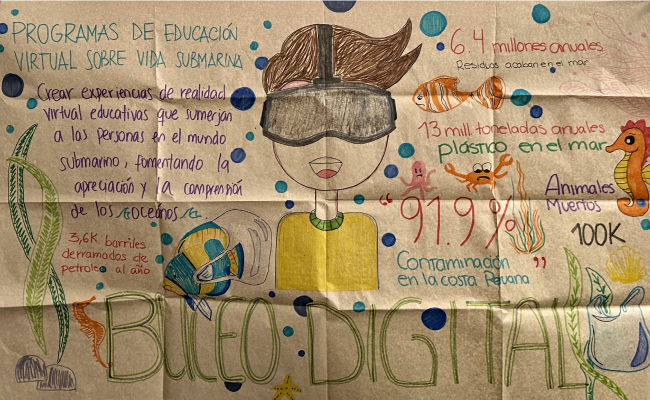 PROGRAMAS DE EDUCACIÓN
VIRTUAL SOBRE VIDA SUBMARINA
Crear experiencias de realidad
virtual educativas que sumerjan
a las personas en el mundo
submarino, fomentando la
apreciación y la comprensión
de los oceános
3,6K barriles
derramados de
petroleo al año
6.4 millones anuales
Residuos acaban en el mar
13 mill toneladas anuales
plástico en el mar
Animales
Muertos
100K
"91.9%"
Contaminación
en la costa Peruana
BUCEO DIGITAL